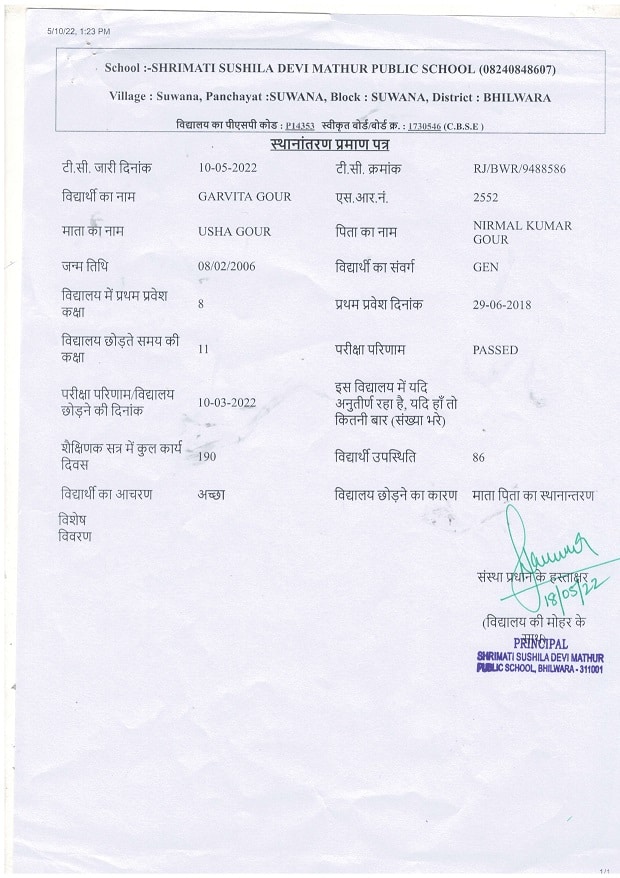 5/10/22, 1:23 PM
School :-SHRIMATI SUSHILA DEVI MATHUR PUBLIC SCHOOL (08240848607)
Village : Suwana, Panchayat :SUWANA, Block : SUWANA, District : BHILWARA
विद्यालय का पीएसपी कोड : P14353 स्वीकृत बोर्ड/बोर्ड क्र. : 1730546 (C.B.S.E )
स्थानांतरण प्रमाण पत्र
टी.सी. जारी दिनांक 10-05-2022 टी.सी. क्रमांक RJ/BWR/9488586
विद्यार्थी का नाम GARVITA GOUR एस.आर.नं. 2552
माता का नाम USHA GOUR पिता का नाम NIRMAL KUMAR
GOUR
जन्म तिथि 08/02/2006 विद्यार्थी का संवर्ग GEN
विद्यालय में प्रथम प्रवेश
कक्षा 8 प्रथम प्रवेश दिनांक 29-06-2018
विद्यालय छोड़ते समय की
कक्षा 11 परीक्षा परिणाम PASSED
परीक्षा परिणाम/विद्यालय
छोड़ने की दिनांक 10-03-2022
इस विद्यालय में यदि
अनुतीर्ण रहा है, यदि हाँ तो
कितनी बार (संख्या भरे)
शैक्षिणक सत्र में कुल कार्य
दिवस 190 विद्यार्थी उपस्थिति 86
विद्यार्थी का आचरण अच्छा विद्यालय छोड़ने का कारण माता पिता का स्थानान्तरण
विशेष
विवरण
संस्था प्रधान के हस्ताक्षर
18/05/22
(विद्यालय की मोहर के
साथ)
PRINCIPAL
SHRIMATI SUSHILA DEVI MATHUR
PUBLIC SCHOOL, BHILWARA - 311001
1/1